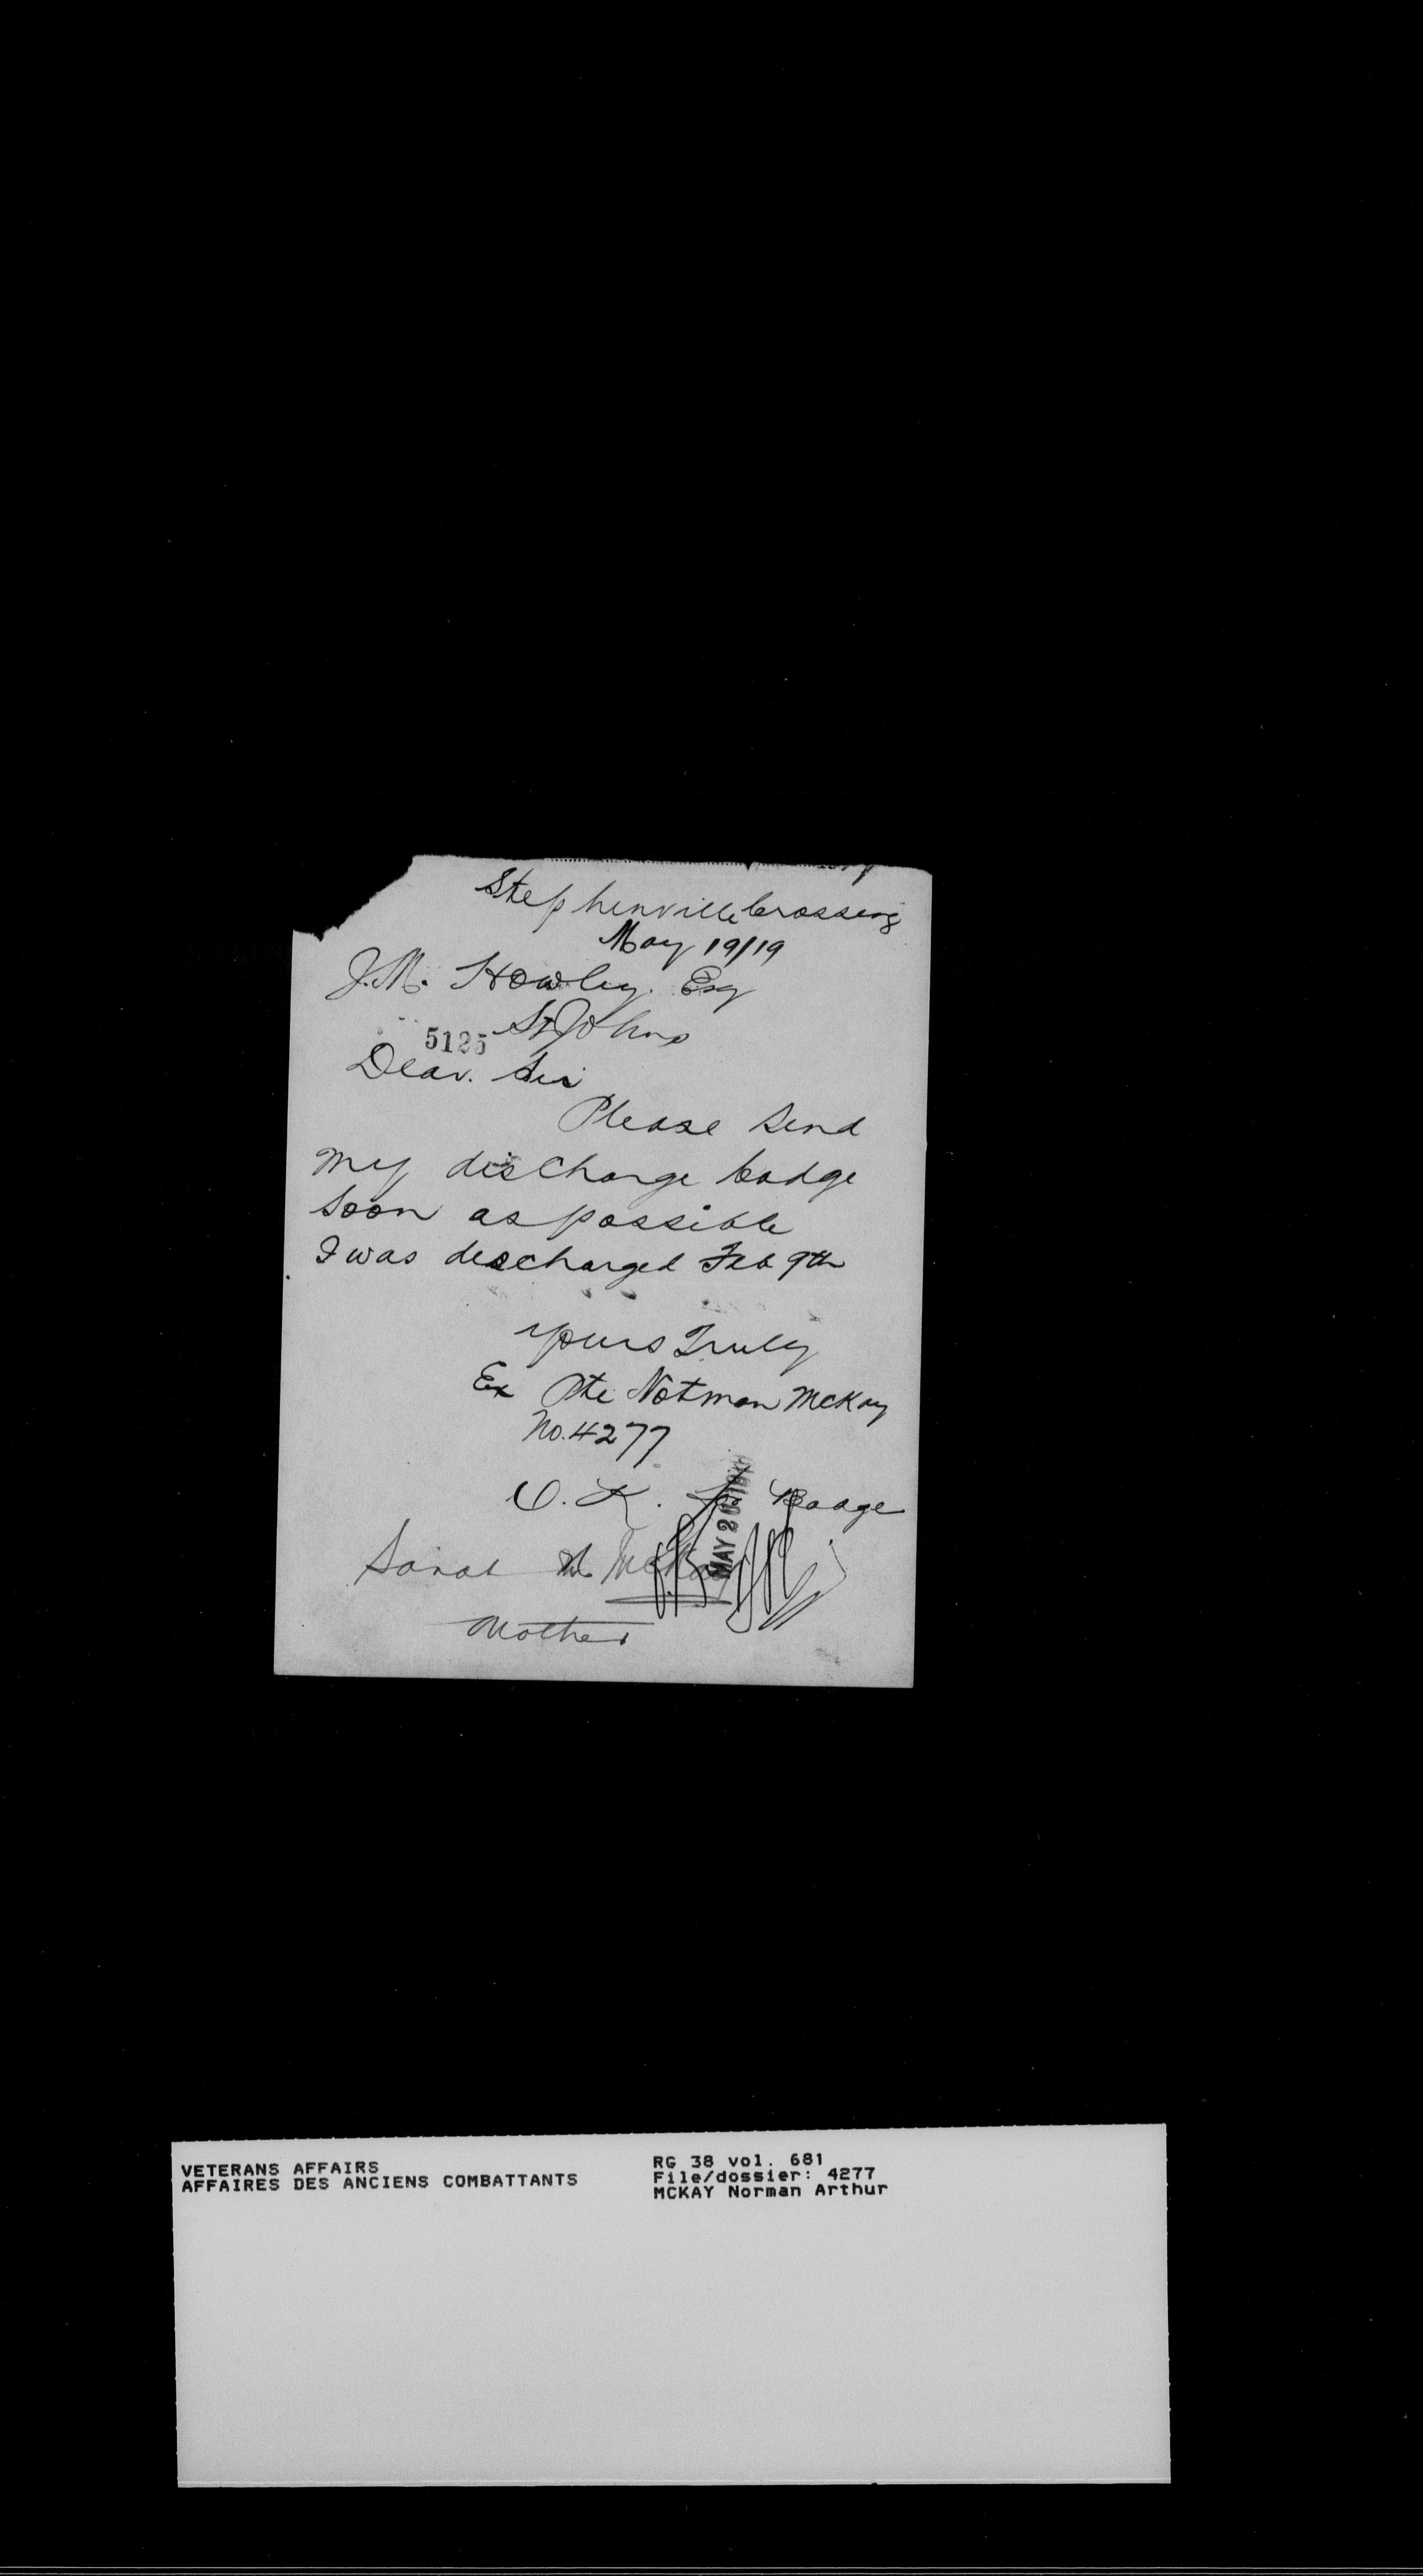 Stephenville Crossing
May 19/19
J.M. Howley. Esq
St Johns
5125
Dear. Sir
Please send
my discharge badge
soon as possible
I was descharged Feb 9th
Yours Truly
Ex Pte Notman McKay
No. 4277
O.K. for Badge
MAY 20 1919
Sarah McKay
Mother
VETERANS AFFAIRS
AFFAIRES DES ANCIENS COMBATTANTS
RG 38 vol. 681
File/dossier: 4277
MCKAY Norman Arthur